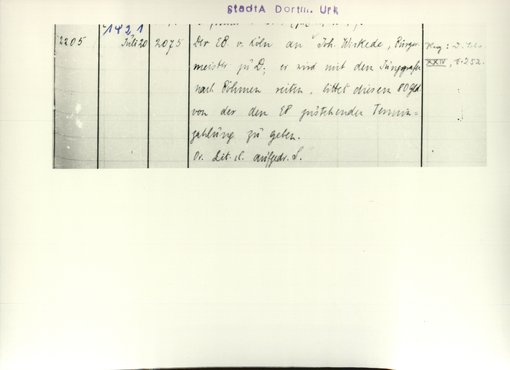 StadtA Dortm. Urk
1421
2205 Juli 20 2075 Der EB v. Köln an Joh. Wickede, Bürger-
meister zu D; er wird mit dem Junggrafen
nach Böhmen reiten, bittet diesem 80 Gld
von der dem EB zustehenden Termin-
zahlung zu geben.
Or. Lit. cl. aufgedr. S.
Reg: D.
XXIV, S. 252.